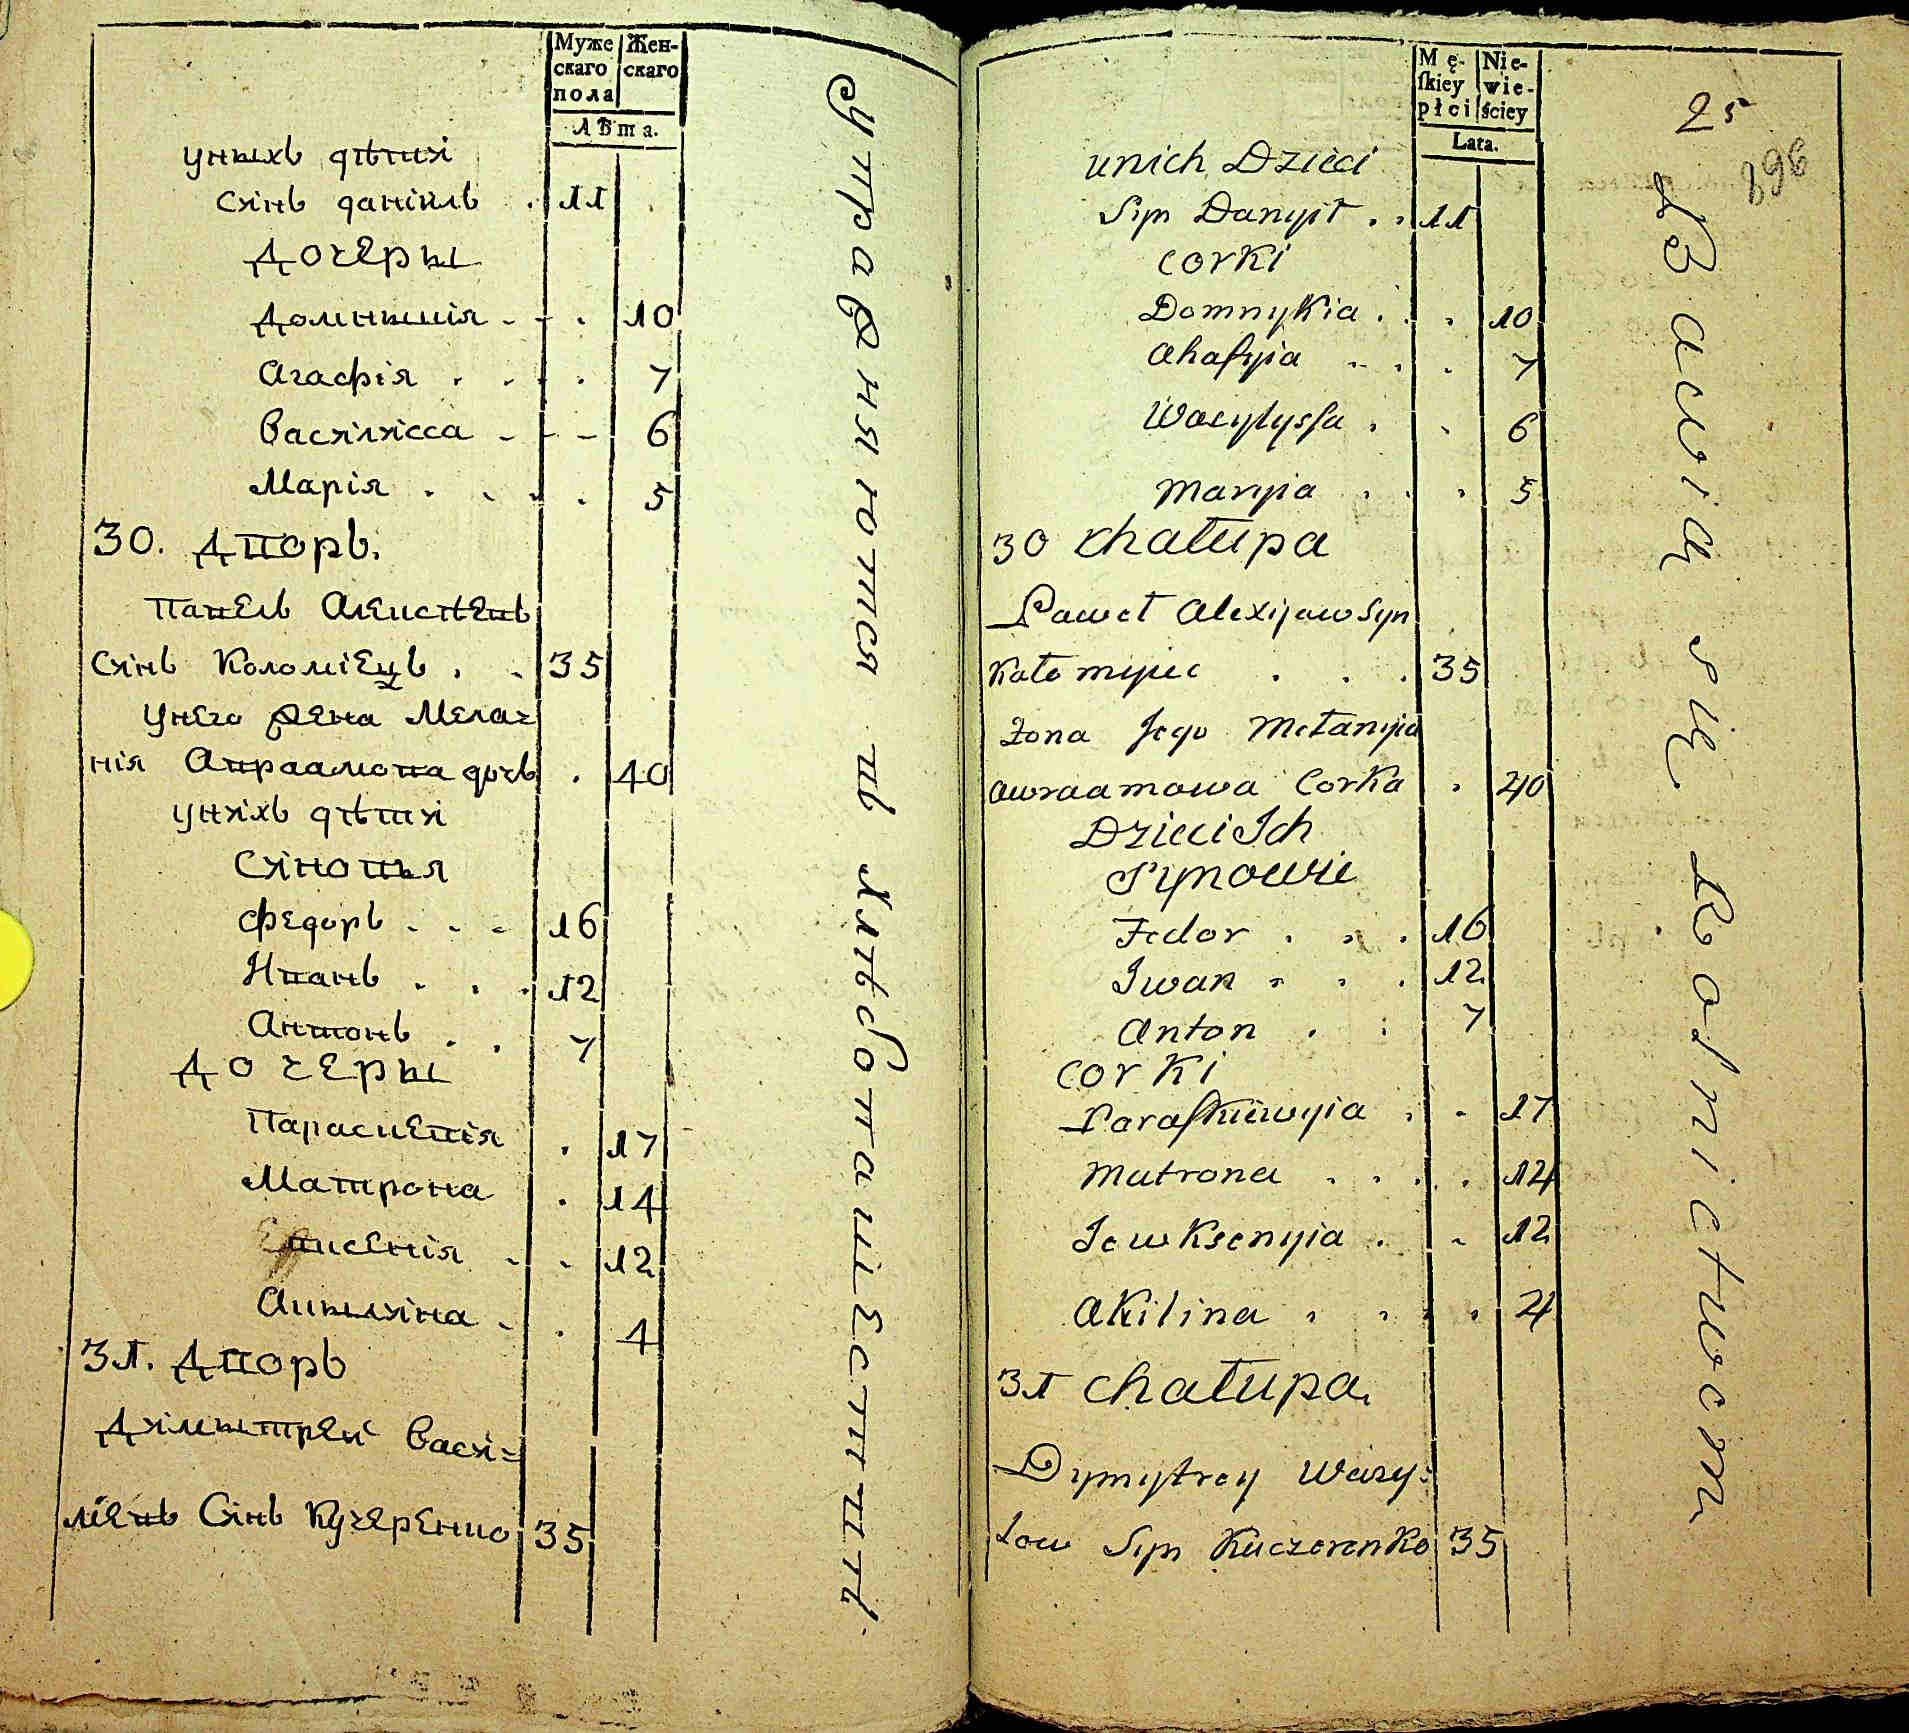 Муже
скаго
пола
Жен-
скаго
Лѣта.
унихъ дѣти
Синъ даніилъ . 11
Дочеры
Домникия - - . 10
Агафія . . . . 7
Василисса - - - 6
Марія . . . . 5
30. Дворъ.
Павелъ Алексѣевъ
Синъ Коломіецъ . . 35
унего жена Мелан=
нія Авраамова дочь . 40
унихъ дѣти
Синовья
Федоръ . . - 16
Иванъ . . . 12
Антонъ . . 7
Дочеры
Параскевія . 17
Матрона . 14
Евксенія . . 12
Акилина . . 4
31. Дворъ
Димитрей Васи=
ліевъ Синъ Кучеренко 35
упражняются въ хлѣбопашествѣ.
Mę-
ſkiey
płci
Nie-
wie-
ściey
Lata.
unich Dzieci
Syn Danyił . . 11
corki
Domnykia . . . 10
Ahafyia . . . 7
Wasylyssa . . 6
Maryia . . . 5
30 chałupa
Paweł Alexijow Syn
Kołomyiec . . . 35
żona Jego Mełanyia
Awraamowa Corka . 40
Dzieci Ich
Synowie
Fedor . . . 16
Iwan . . . 12
Anton . : 7
corki
Paraſkiewyia . . 17
Matrona . . . . . 14
JewKsenyia . . 12
Akilina . . . . 4
31 chałupa.
Dymytrey Wasy:
łow Syn Kuczerenko 35
25
398
Bawią się Rolnictwem